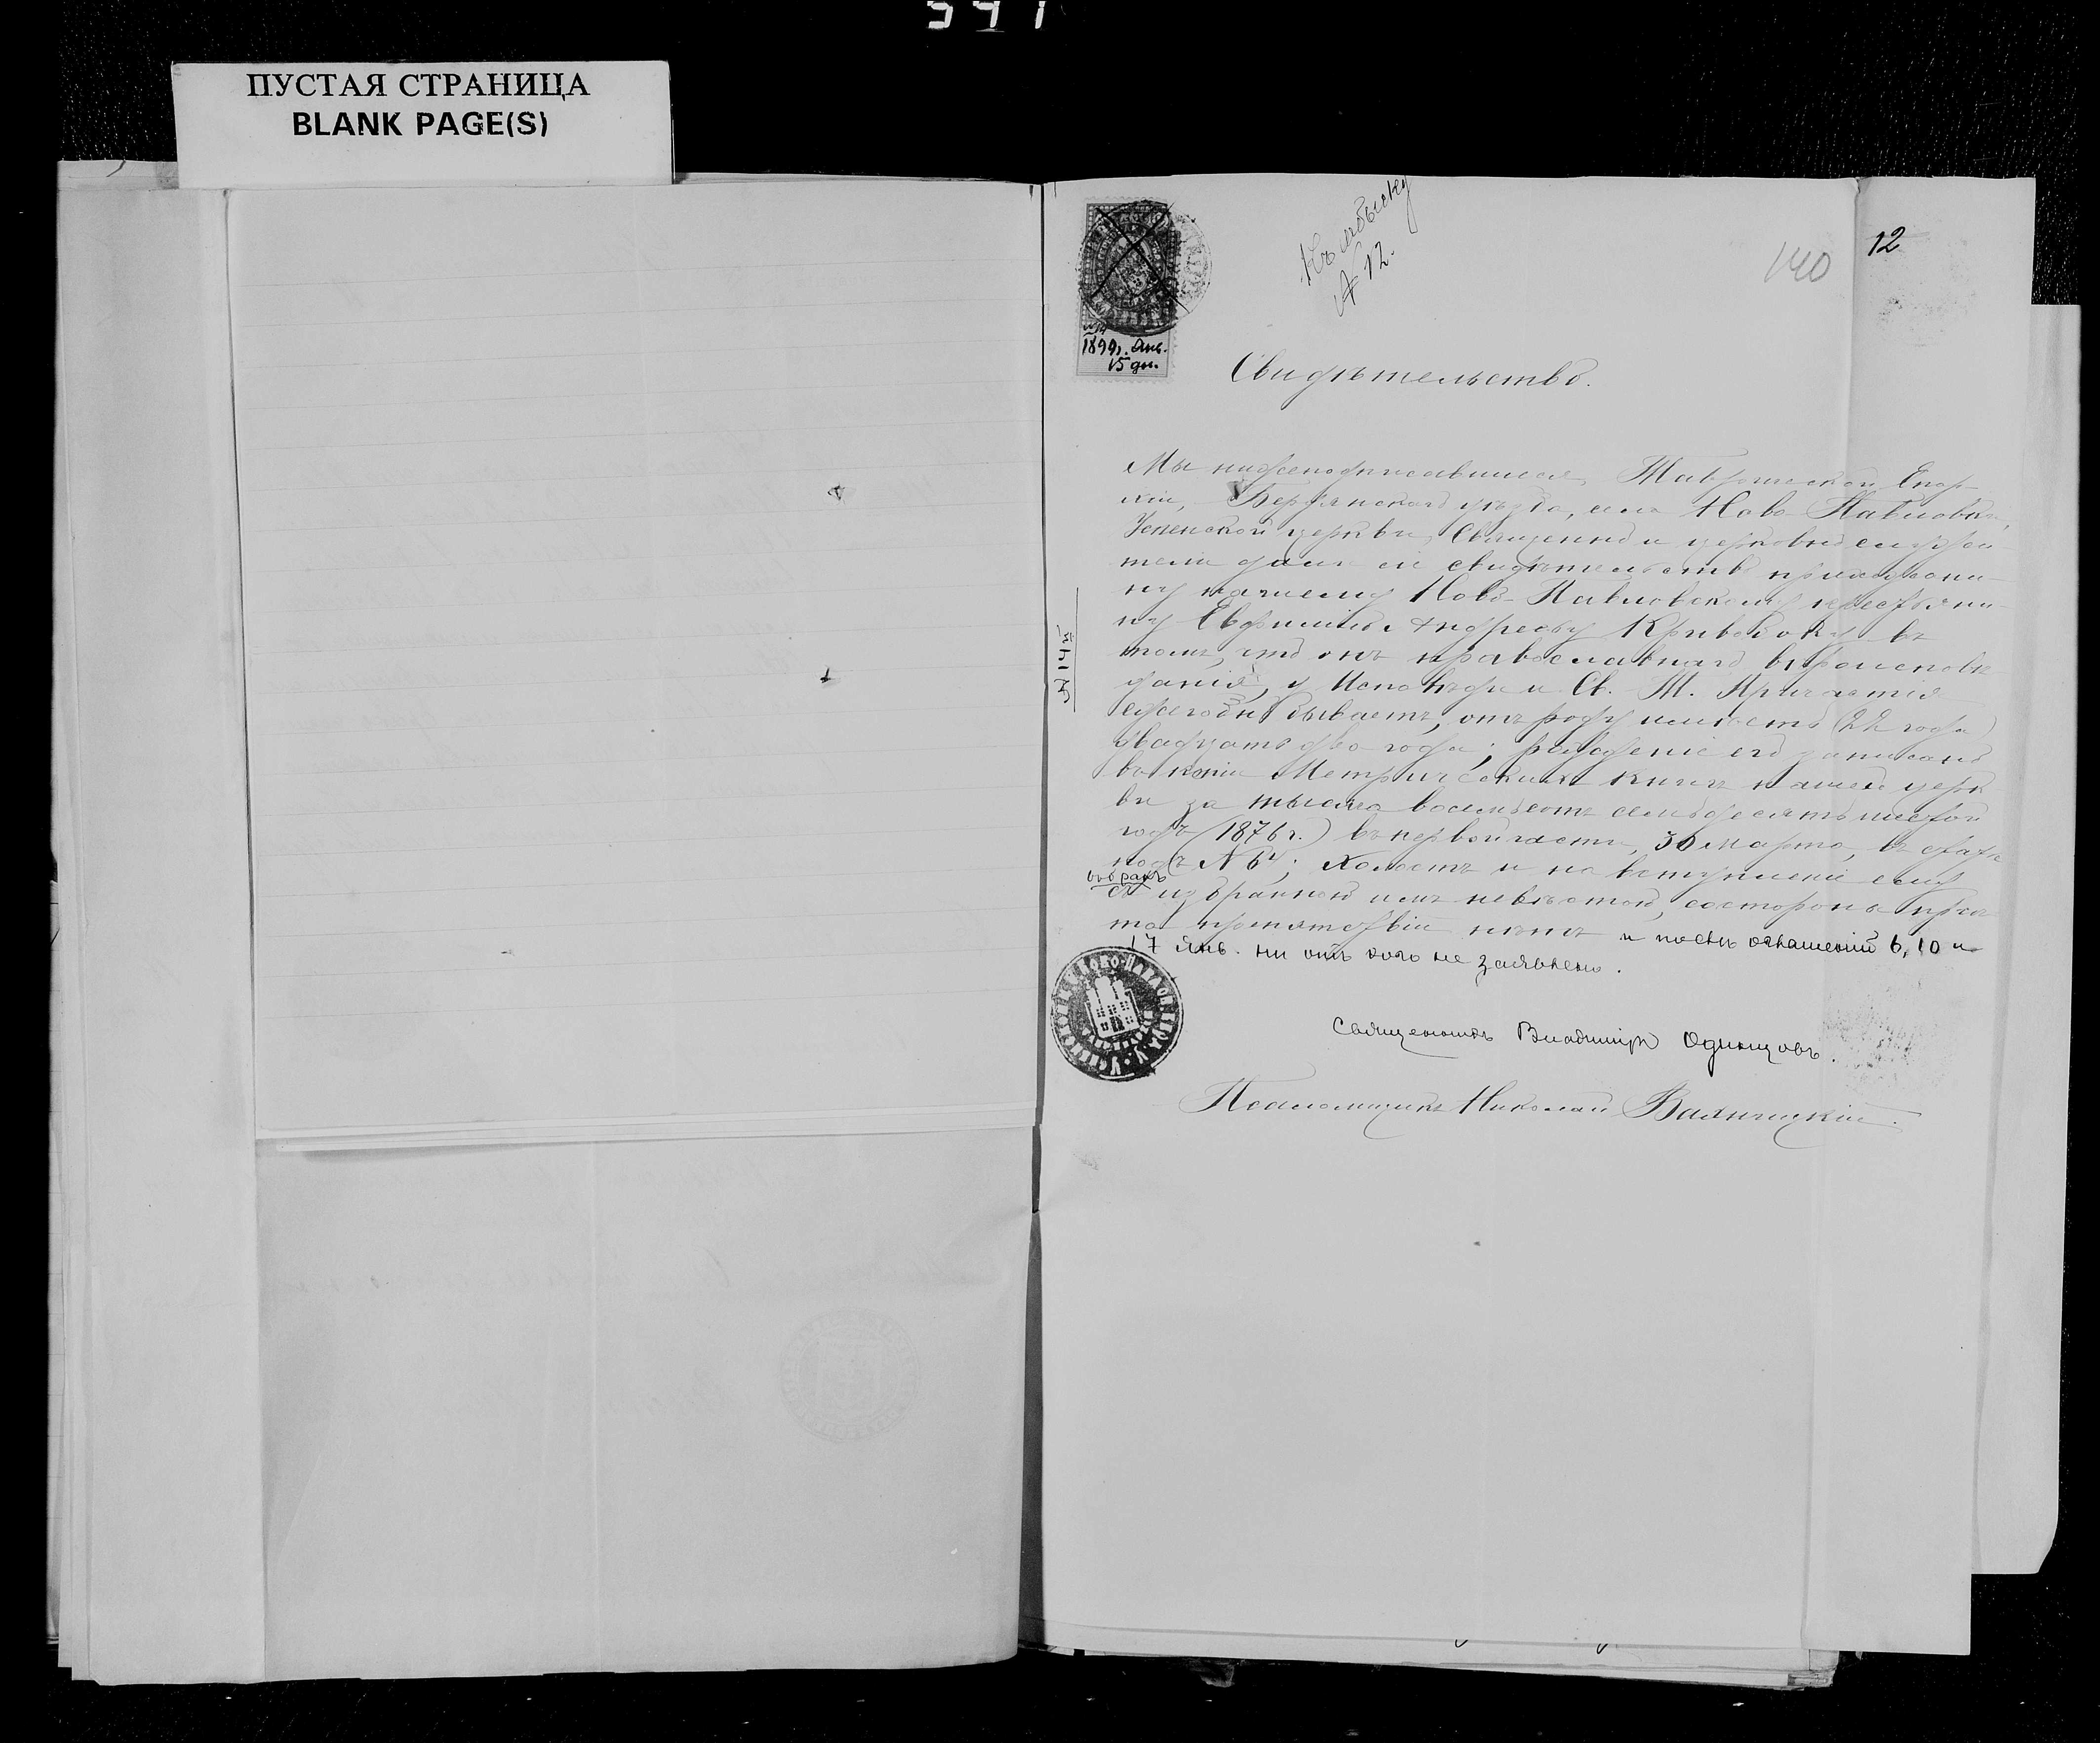 541
ПУСТАЯ СТРАНИЦА
BLANK PAGE(S)
Къ обыску
№ 12.
140
12
1899 г. Янв.
15 дн.
Свидѣтельство.
Мы нижеподписавшіеся, Таврической Епар-
хіи, Бердянскаго уѣзда, села Ново-Павловки,
Успенской церкви, Священно и церковно служи-
тели дали сіе свидѣтельство прихожани-
ну нашему Ново-Павловскому крестьяни-
ну Евфимію Андрееву Кривобоку въ
томъ, что онъ православнаго вѣроисповѣ-
данія, у Исповѣди и Св. Т. Причастія
ежегодно бываетъ, отъ роду имѣетъ (22 года)
двадцать два года; рожденіе его записано
въ копіи Метрическихъ книгъ нашей церк
ви за тысяча восемьсотъ семьдесятъ шестой
годъ (1876 г.) въ первой части, 30 марта, въ статьѣ
подъ № 64; Холостъ и на вступленіе ему
въ бракъ
съ избранной имъ невѣстой, со стороны прич
та препятствій нѣтъ и послѣ оглашеній 6, 10 и
17 Янв. ни отъ кого не заявлено.
Священникъ Владиміръ Одинцовъ.
Псаломщикъ Николай
№ 14й